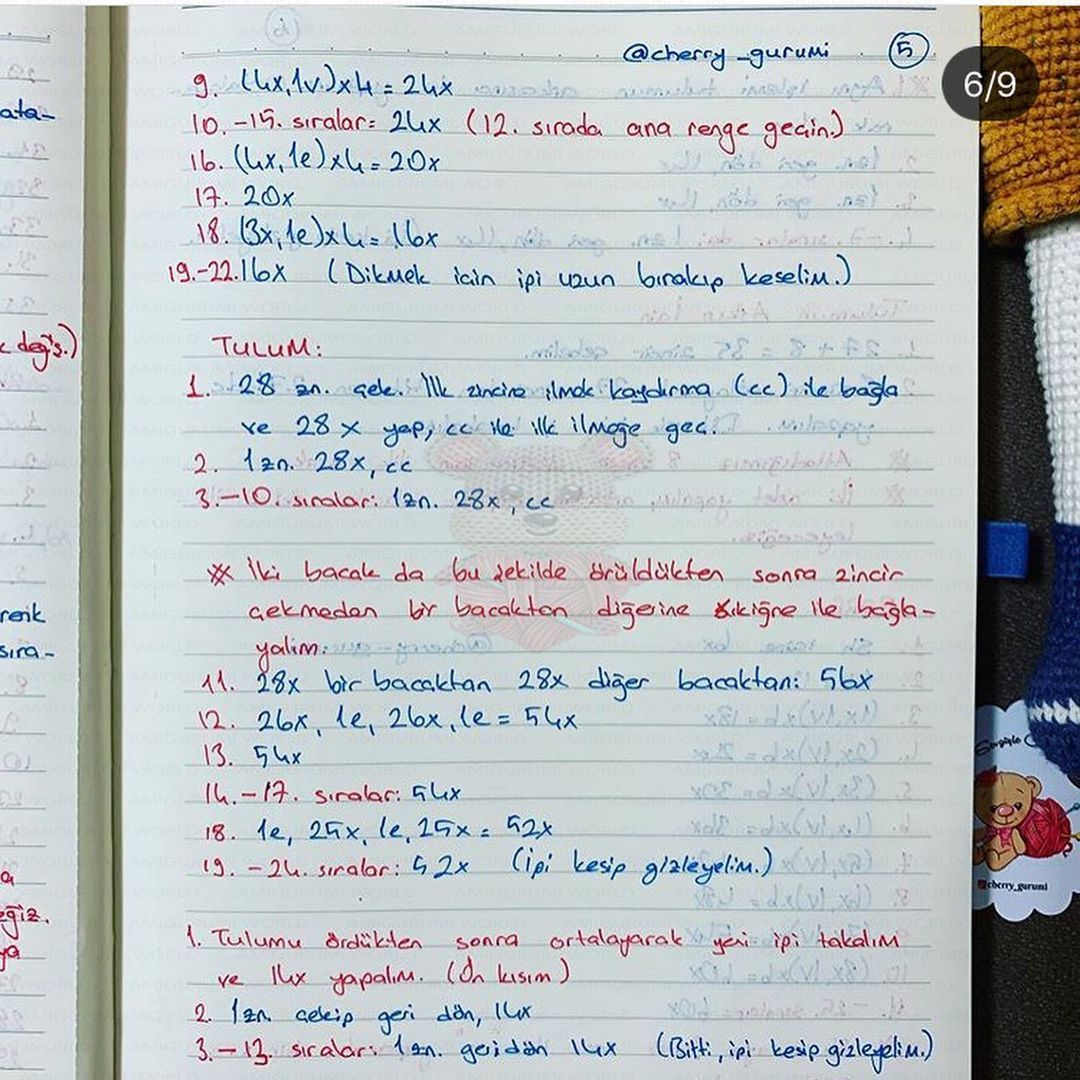 @cherry_gurumi 5
6/9
9. (4x,1v)x4 = 24x
10.-15. sıralar= 24x (12. sırada ana renge geçin.)
16. (4x, 1e)x4 = 20x
17. 20x
18. (3x, 1e)x4 = 16x
19.-22. 16x (Dikmek için ipi uzun bırakıp keselim.)
TULUM:
1. 28 zn. çek. İlk zincire ilmek kaydırma (cc) ile bağla
ve 28 x yap, cc ile ilk ilmeğe geç.
2. 1zn. 28x, cc
3.-10. sıralar: 1zn. 28x, cc
* İki bacak da bu şekilde örüldükten sonra zincir
çekmeden bir bacaktan diğerine sıkiğne ile bağla-
yalım.
11. 28x bir bacaktan 28x diğer bacaktan: 56x
12. 26x, 1e, 26x, 1e = 54x
13. 54x
14.-17. sıralar: 54x
18. 1e, 25x, 1e, 25x = 52x
19.-24. sıralar: 52x (İpi kesip gizleyelim.)
1. Tulumu ördükten sonra ortalayarak yeni ipi takalım
ve 14x yapalım. (Ön kısım)
2. 1zn çekip geri dön, 14x
3.-13. sıralar: 1zn. geri dön 14x (Bitti, ipi kesip gizleyelim.)
ata-
değiş.)
renk
sıra-
eğiz.
ya
cherry_gurumi
AMIGURUMI WORLD